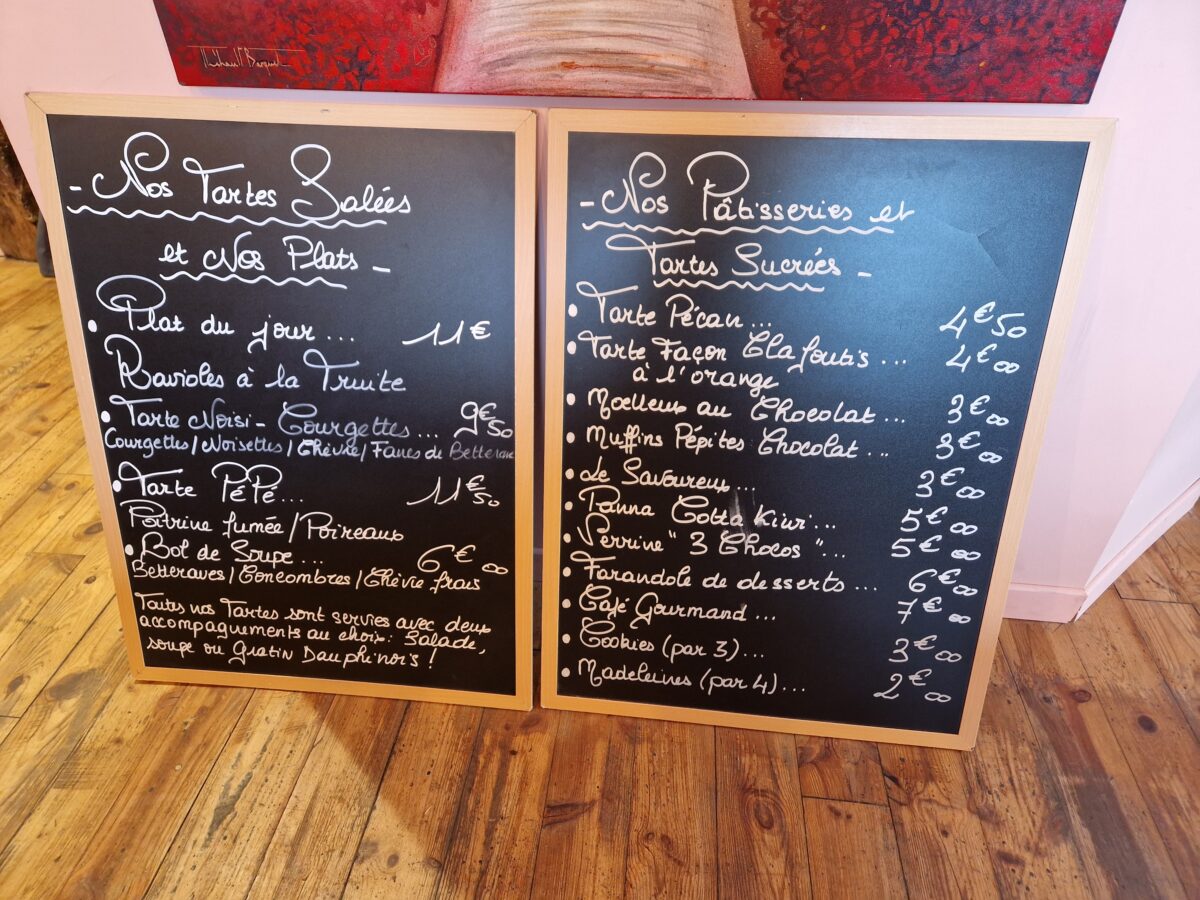 - Nos Tartes Salées
et Nos Plats -
• Plat du jour... 11€
Ravioles à la Truite
• Tarte Noisi-Courgettes... 9€50
Courgettes/Noisettes/Chèvre/Fanes de Betterave
• Tarte PéPé... 11€50
Poitrine fumée/Poireaux
• Bol de Soupe... 6€00
Betteraves/Concombres/Chèvre frais
Toutes nos Tartes sont servies avec deux
accompagnements au choix: Salade,
soupe ou Gratin Dauphinois!
- Nos Pâtisseries et
Tartes Sucrées -
• Tarte Pécan... 4€50
• Tarte Façon Clafoutis... 4€00
à l'orange
• Moelleux au Chocolat... 3€00
• Muffins Pépites Chocolat... 3€00
• Le Savoureux... 3€00
• Panna Cotta Kiwi... 5€00
• Verrine "3 Chocos"... 5€00
• Farandole de desserts... 6€00
• Café Gourmand... 7€00
• Cookies (par 3)... 3€00
• Madeleines (par 4)... 2€00